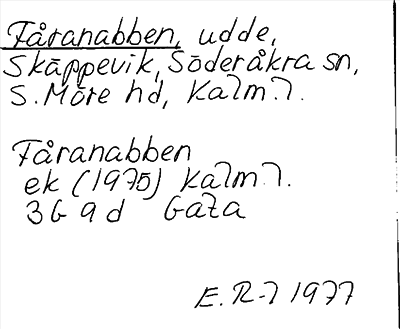 Fåranabben, udde,
Skäppevik, Söderåkra sn,
S. Möre hd, Kalm. l.
Fåranabben
ek (1975) Kalm. l.
3G 9d Gata
E. R-l 1977